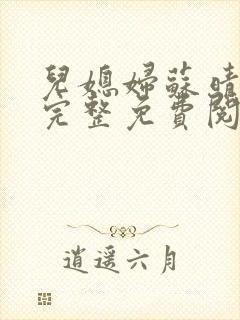 兒媳婦蘇晴
完整免費閱
逍遥六月